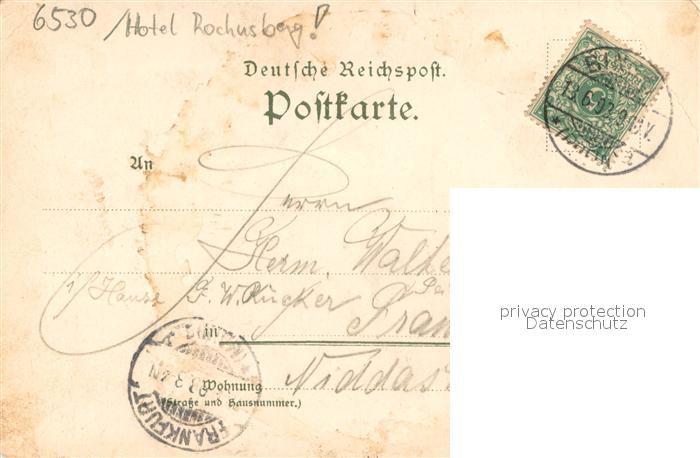 6530 / Hotel Rochusberg!
Deutsche Reichspost.
Postkarte.
An
Herrn
Herm. Walte
i/ Hause F. W. Rücker
in Fran
Wohnung Niddas
(Straße und Hausnummer.)
FRANKFURT
privacy protection
Datenschutz